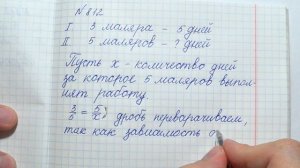 № 812
I. 3 маляра - 5 дней
II. 5 маляров - ? дней
Пусть x - количество дней
за которое 5 маляров выпол-
нят работу.
3/5 = 5/x) дробь переворачиваем,
так как зависимость о